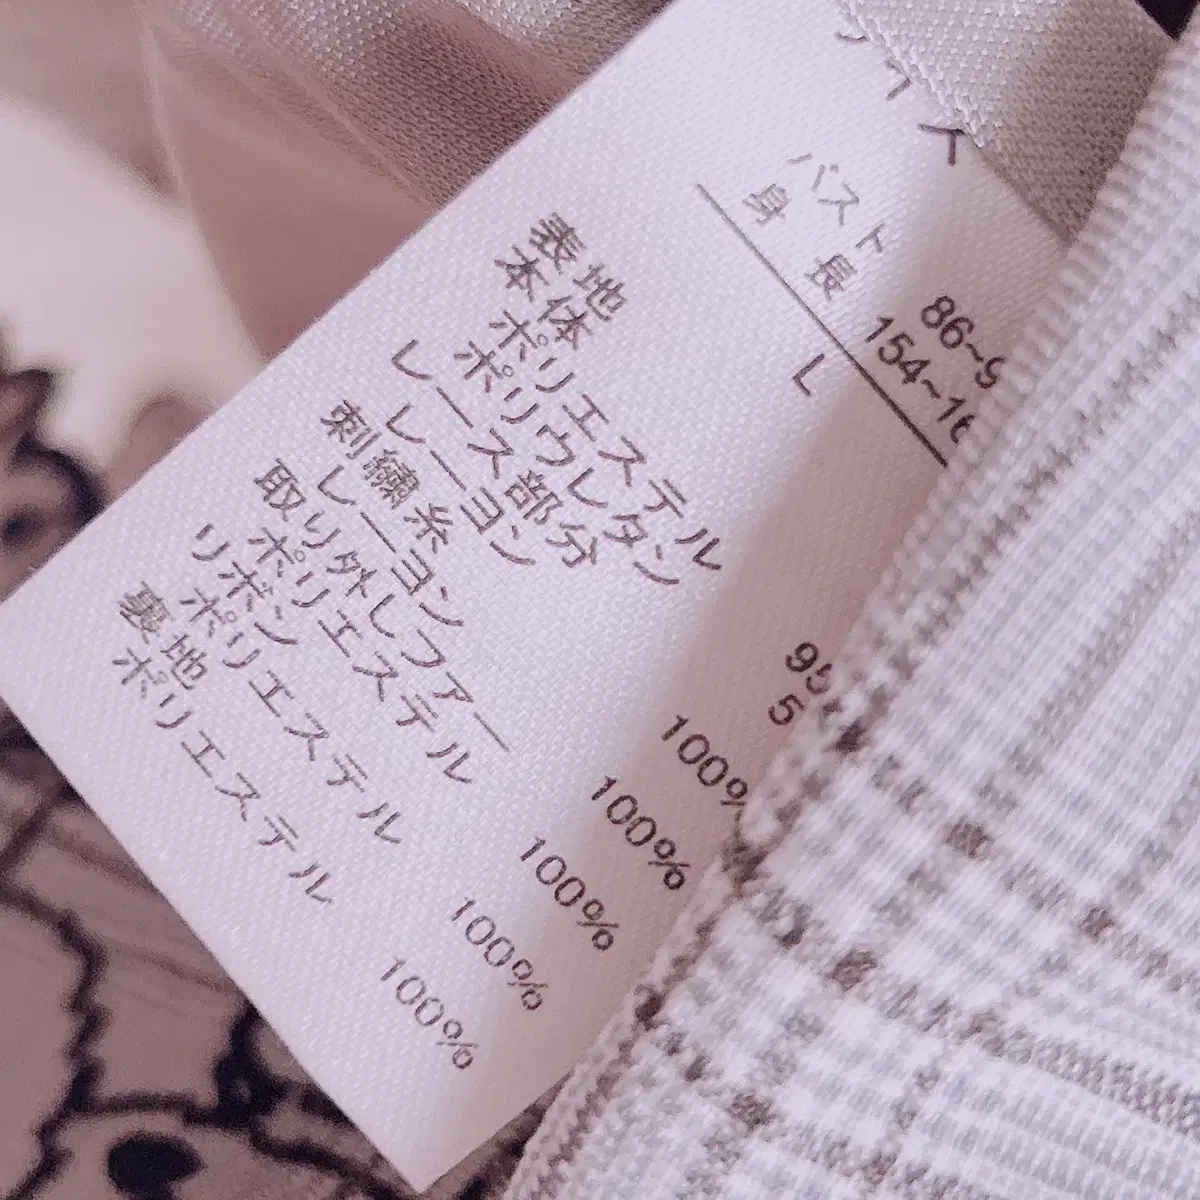 サイズ
バスト 86~9
身長 154~16
L
表地
本体
ポリエステル 95
ポリウレタン 5
レース部分
レーヨン 100%
刺繍糸
レーヨン 100%
取り外しファー
ポリエステル 100%
リボン
ポリエステル 100%
裏地
ポリエステル 100%